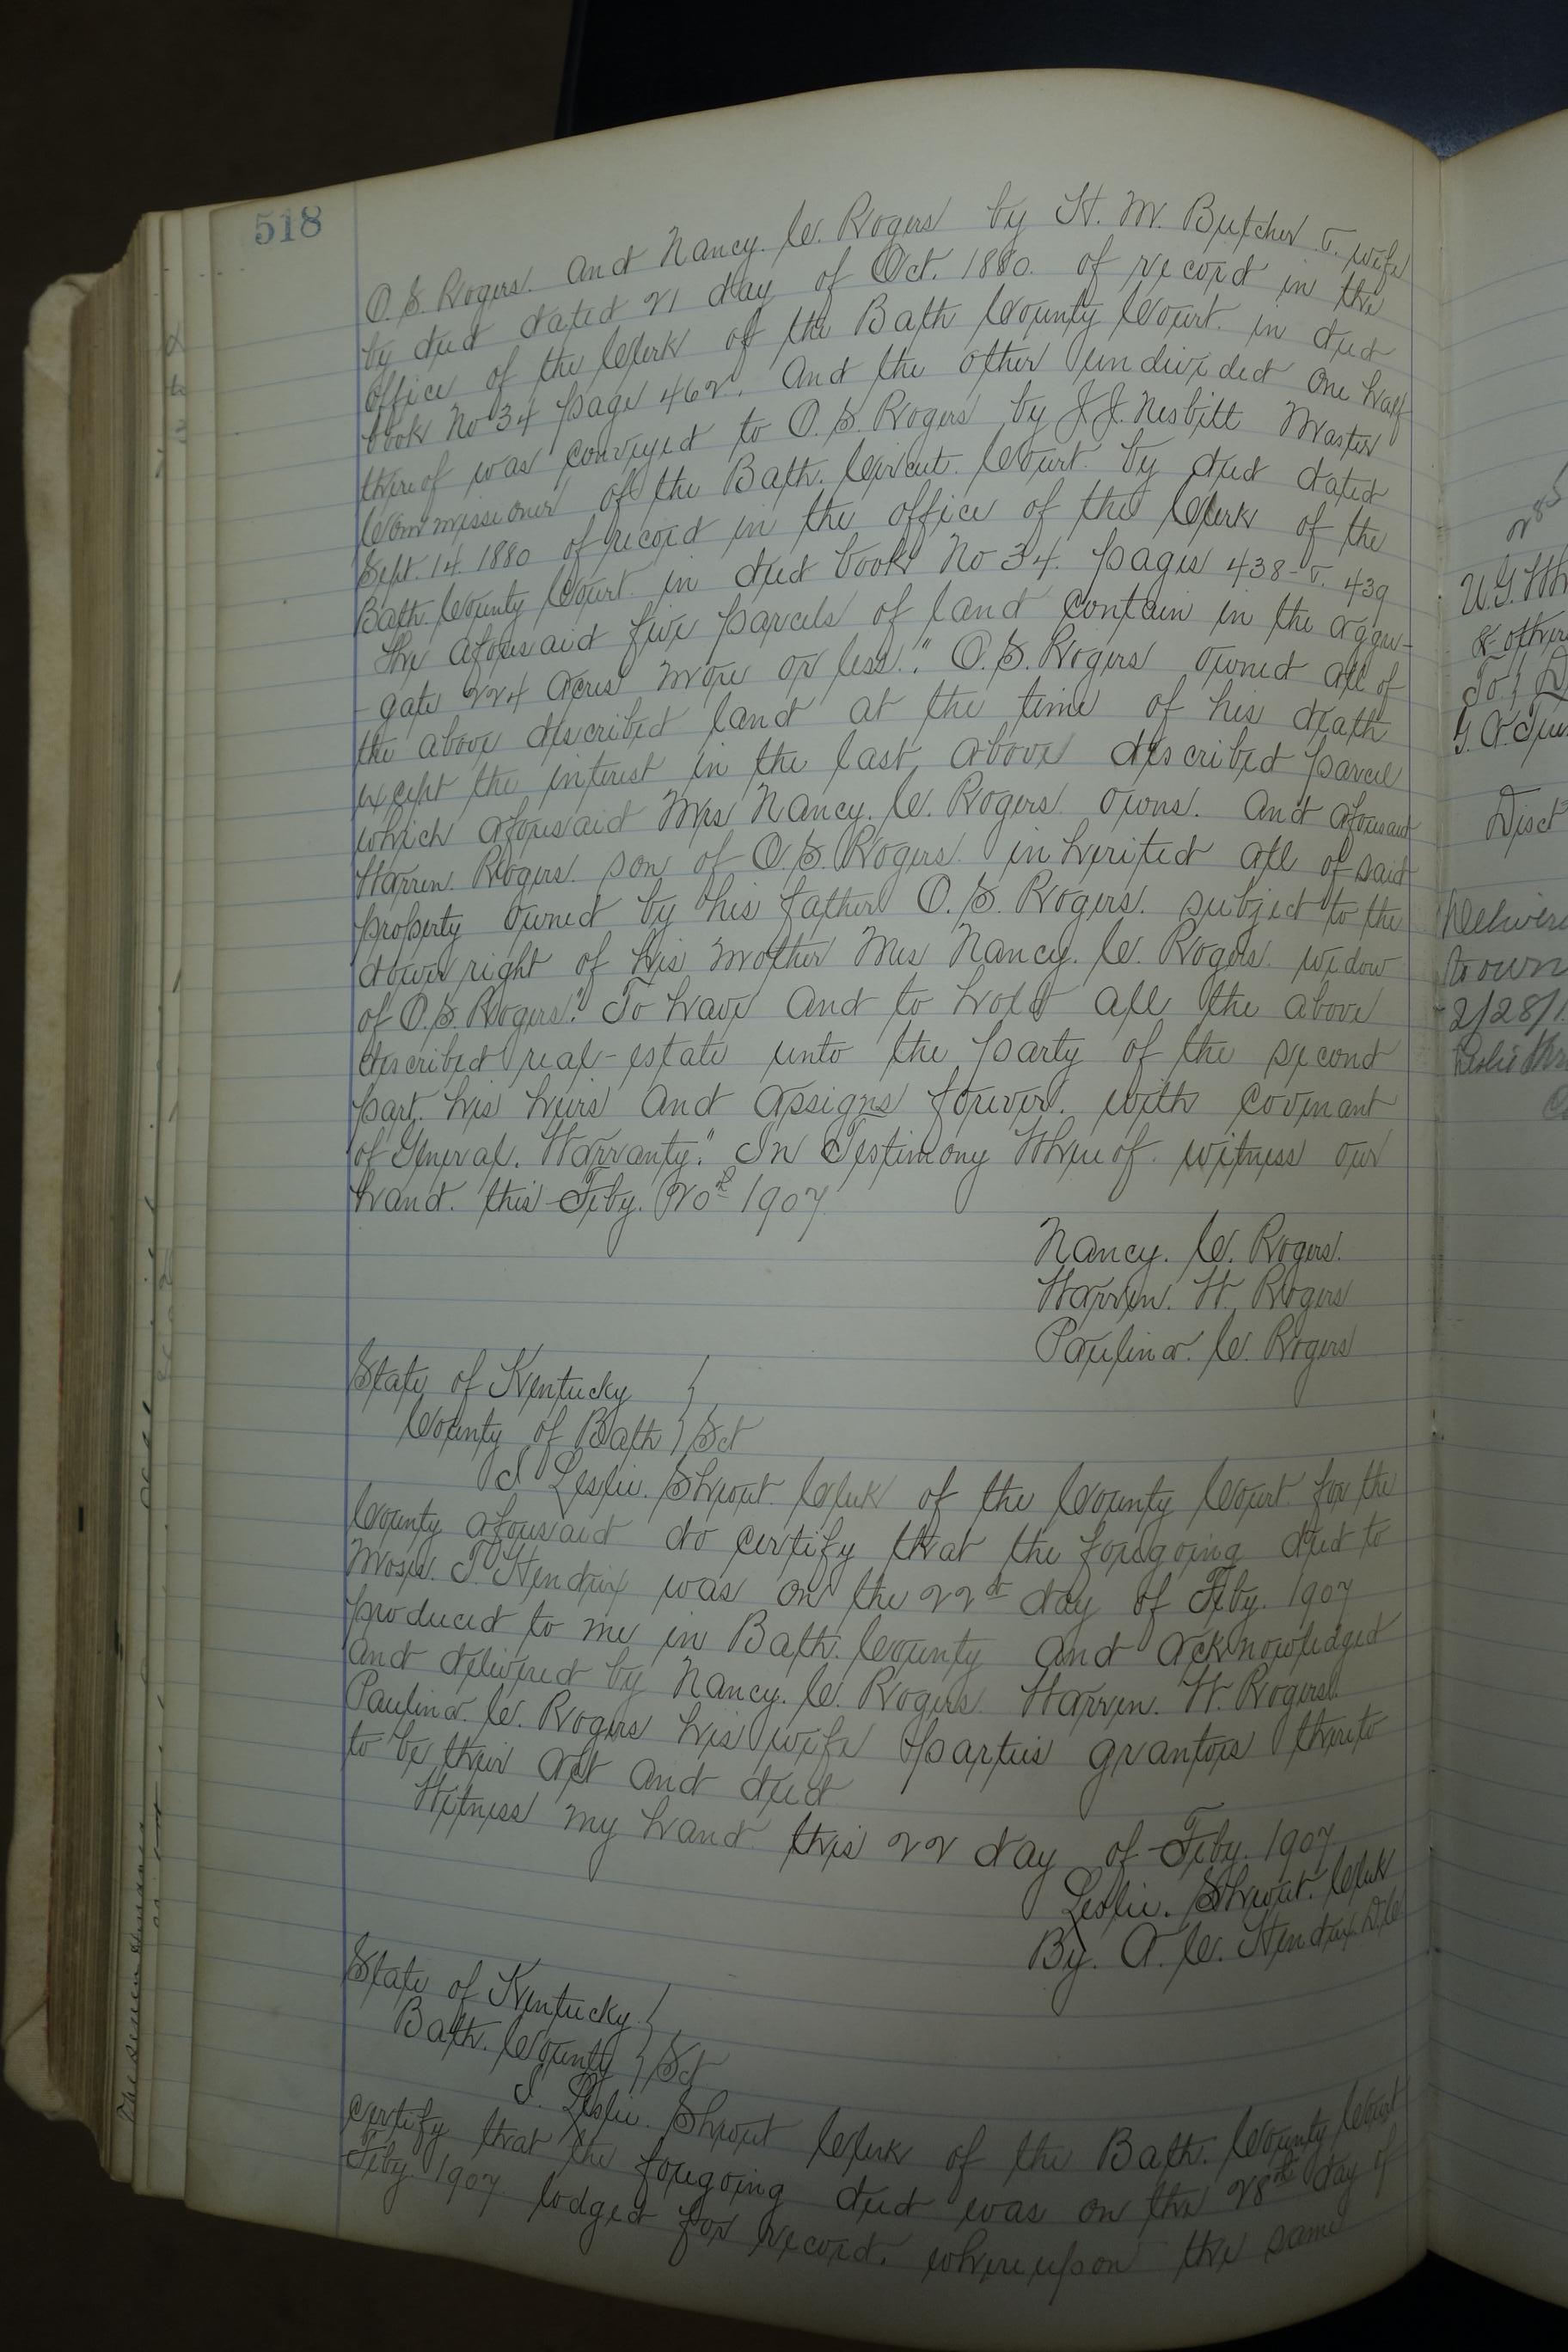 518
O. S. Rogers. and Nancy. C. Rogers by H. M. Butcher & wife
by deed dated 21 day of Oct. 1880. of record in the
office of the Clerk of the Bath County Court. in deed
book No 34 page 462. And the other undivided one half
thereof was conveyed to O. S. Rogers by J. J. Nesbitt Master
Commissioner of the Bath. Circut. Court. by deed dated
Sept. 14. 1880 of record in the office of the Clerk of the
Bath. County Court. in deed book No 34. pages 438- & 439
The aforesaid five parcels of land contain in the aggre-
gate 224 acres more or less." O. S. Rogers owned all of
the above described land at the time of his death
except the interest in the last above described parcel
which aforesaid Mrs Nancy. C. Rogers. owns. And aforesaid
Warren. Rogers. son of O. S. Rogers. inherited all of said
property owned by his father O. S. Rogers. subject to the
dower right of his mother Mrs Nancy. C. Rogers. widow
of O. S. Rogers." To have and to hold all the above
described real-estate unto the party of the second
part. his heirs and assigns forever. with covenant
of General. Warranty." In Testimony Whereof. witness our
hand. this Feby. 20th 1907
Nancy. C. Rogers.
Warren. W. Rogers
Paulina. C. Rogers
State of Kentucky }
County of Bath } Sct
I Leslie. Shrout. Clerk of the County Court for the
County aforesaid do certify that the foregoing deed to
Moses. T. Hendrix was on the 22d day of Feby. 1907
produced to me in Bath. County and acknowledged
and delivered by Nancy. C. Rogers. Warren. W. Rogers.
Paulina. C. Rogers his wife parties grantors thereto
to be their act and deed
Witness my hand this 22 day of Feby. 1907
Leslie. Shrout. Clerk
By. A. C. Hendrix. D.C.
State of Kentucky }
Bath. County } Sct
I. Leslie. Shrout Clerk of the Bath. County Court
certify that the foregoing deed was on the 28th day of
Feby. 1907 lodged for record. whereupon the same
U.G.
& other
To
G. A.
Deliver
to own
2/28/1
Leslie